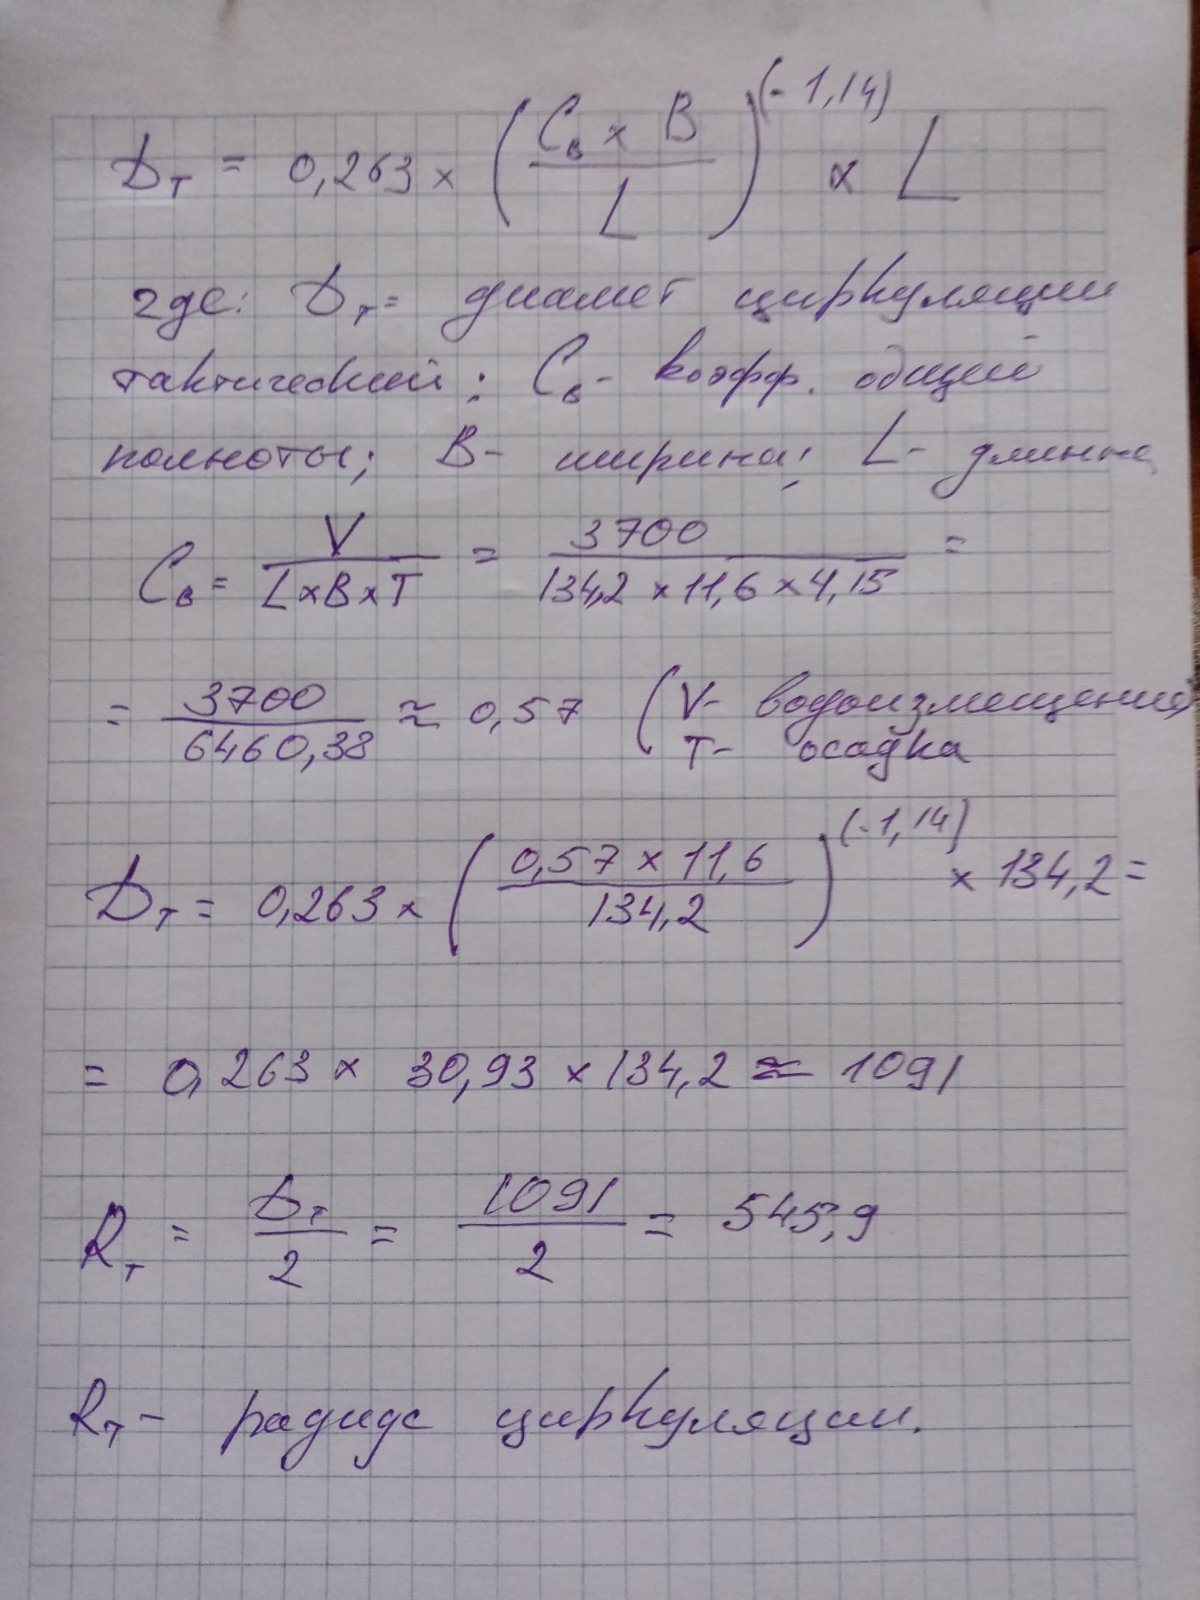 Dт = 0,263 × (Cв × B / L)^(-1,14) × L
где: Dт = диамет циркуляции
тактический; Cв - коэфф. общий
полноты; B - ширина; L - длинна
Cв = V / L×B×T = 3700 / 134,2 × 11,6 × 4,15 =
= 3700 / 6460,38 ≈ 0,57 (V- водоизмещение,
T- осадка
Dт = 0,263 × (0,57 × 11,6 / 134,2)^(-1,14) × 134,2 =
= 0,263 × 30,93 × 134,2 ≈ 1091
Rт = Dт / 2 = 1091 / 2 = 545,9
Rт - радиус циркуляции.